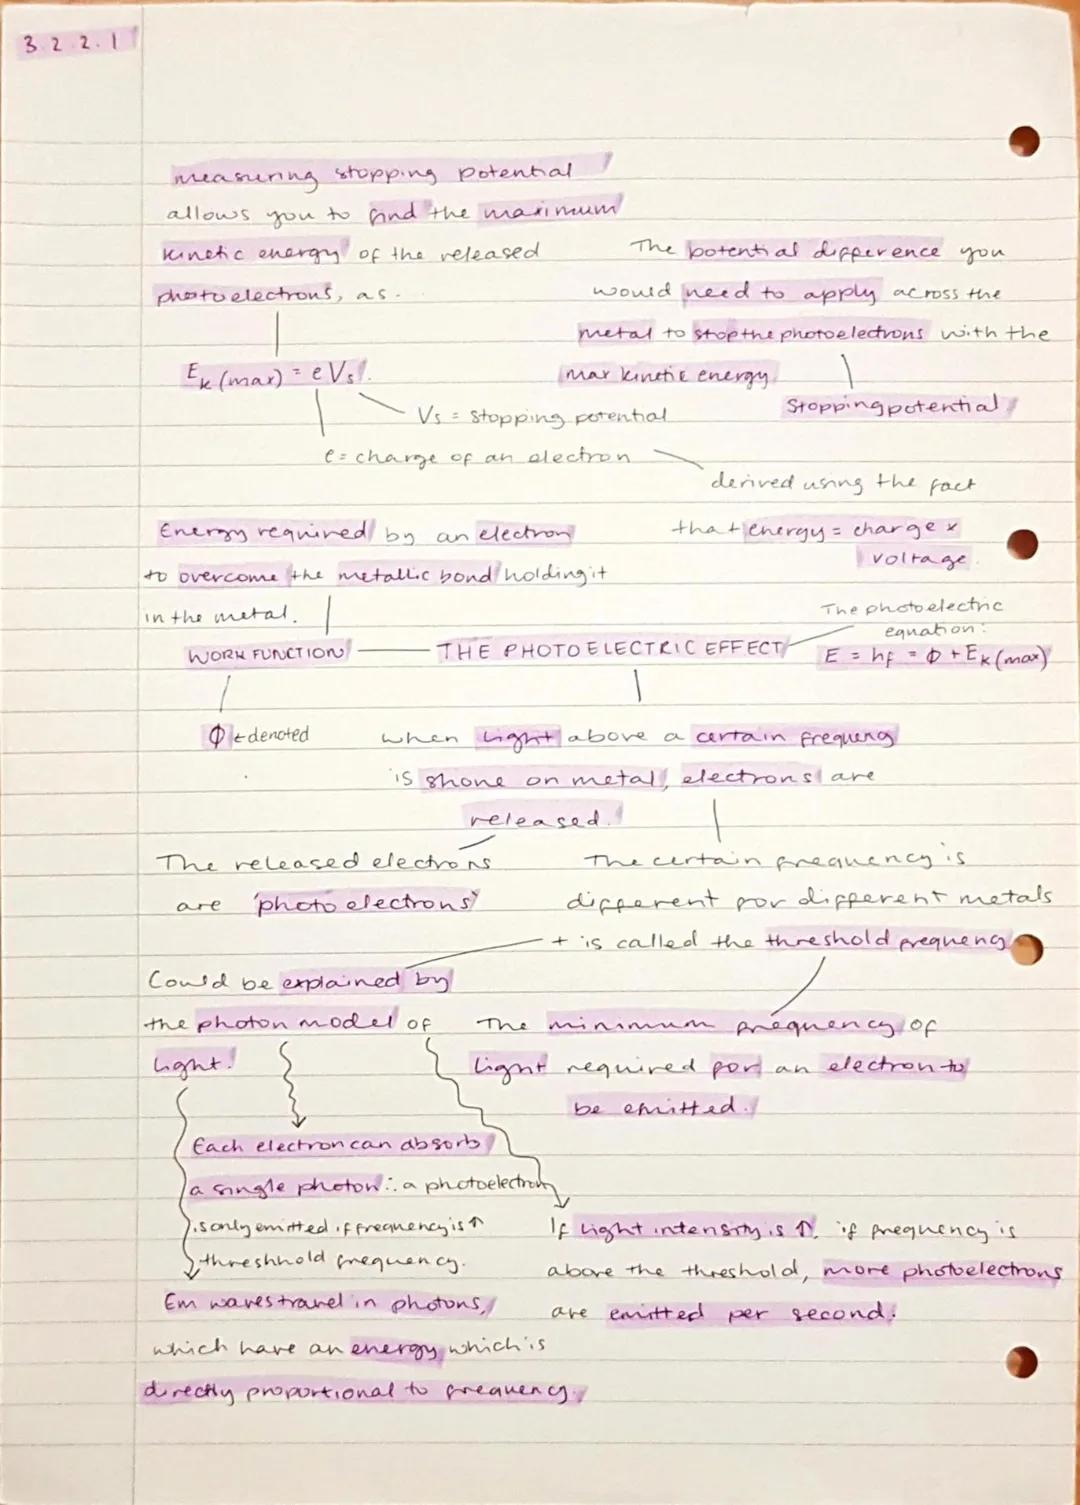 3.2.2.1
measuring stopping potential
allows you to find the maximum
kinetic energy of the released
photoelectrons, as.
Ek (max) = eVs.
Vs = stopping potential
e = charge of an electron
The potential difference you
would need to apply across the
metal to stop the photoelectrons with the
max kinetic energy.
Stopping potential
derived using the fact
that energy = charge x
voltage.
Energy required by an electron
to overcome the metallic bond holding it
in the metal.
WORK FUNCTION
Φ ← denoted
THE PHOTOELECTRIC EFFECT
The photoelectric
equation:
E = hf = Φ + Ek (max)
when light above a certain frequency
is shone on metal, electrons are
released.
The released electrons
are 'photoelectrons'
The certain frequency is
different for different metals
+ is called the threshold frequency
The minimum frequency of
light required for an electron to
be emitted.
Could be explained by
the photon model of
light.
Each electron can absorb
a single photon ∴ a photoelectron
is only emitted if frequency is ↑
threshhold frequency.
Em waves travel in photons,
which have an energy which is
directly proportional to frequency.
If light intensity is ↑, if frequency is
above the threshold, more photoelectrons
are emitted per second.